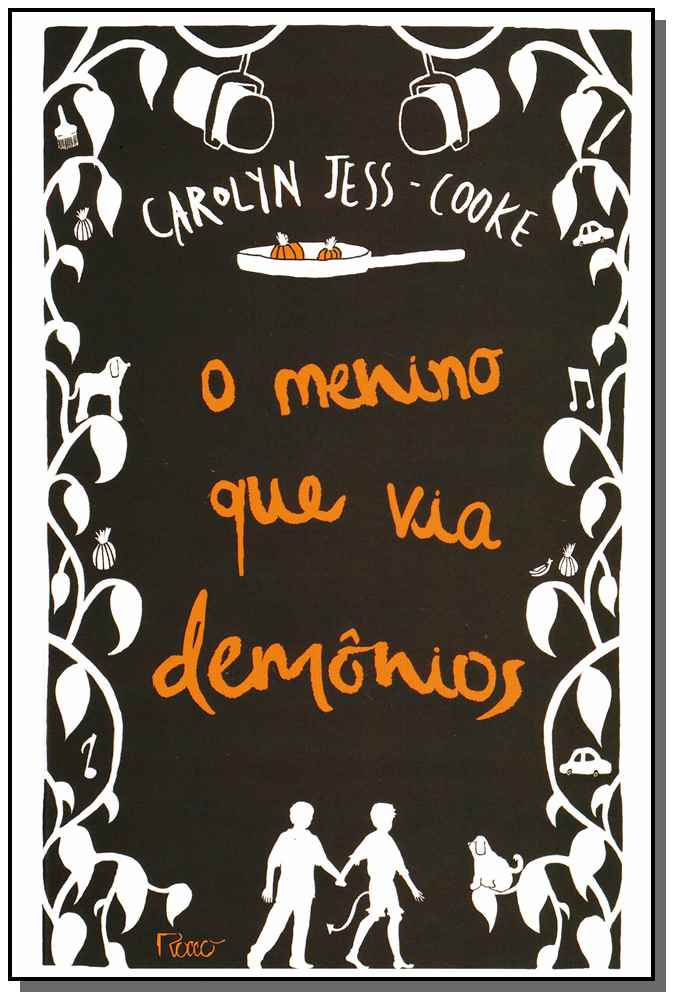 CAROLYN JESS-COOKE
o menino
que via
demônios
Rocco